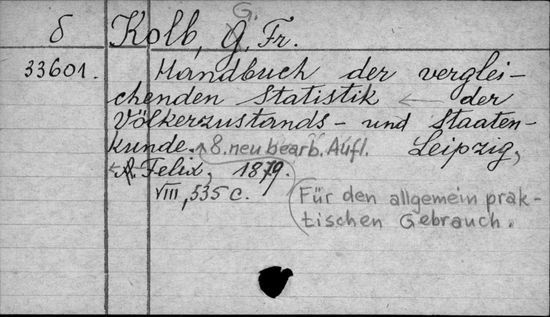 G.
δ Kolb, G. Fr.
33601. Handbuch der verglei-
chenden Statistik ← der
Völkerzustands- und Staaten-
kunde. 8. neu bearb. Aufl. Leipzig,
A. Felix, 1879.
VIII, 535 c.
Für den allgemein prak-
tischen Gebrauch.